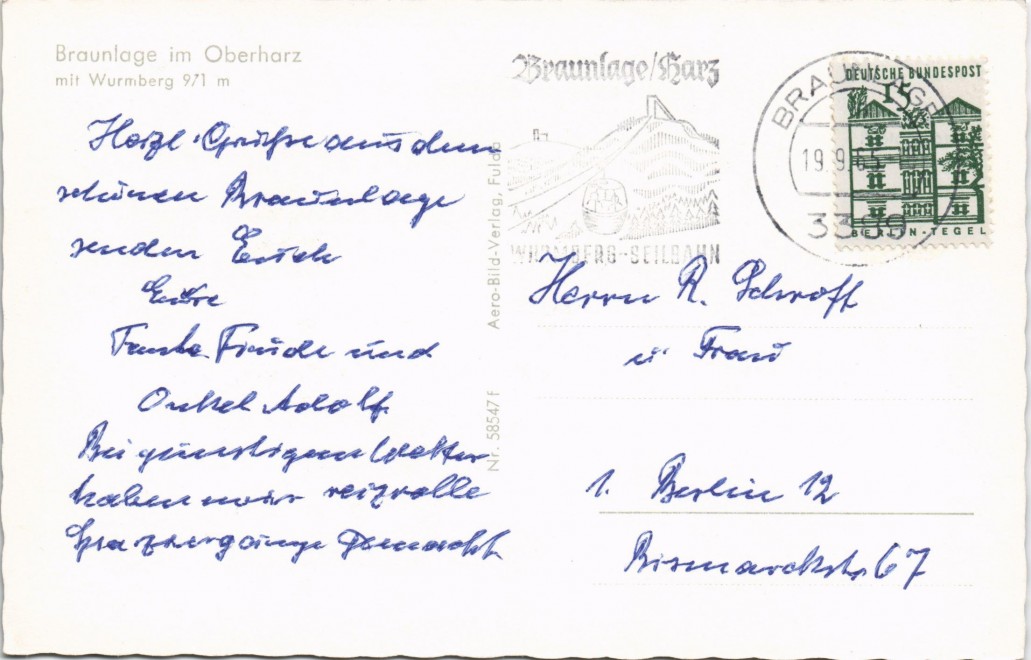 Braunlage im Oberharz
mit Wurmberg 971 m
Herzl. Grüße aus dem
schönen Braunlage
senden Euch
Eure
Tante Friedel und
Onkel Adolf.
Bei günstigem Wetter
haben wir reizvolle
Spaziergänge gemacht.
Aero-Bild-Verlag, Fulda
Nr. 58547 f
Braunlage/Harz
WURMBERG-SEILBAHN
BRAUNLAGE
19.9.65
3389
DEUTSCHE BUNDESPOST
15
BERLIN-TEGEL
Herrn R. Schroff
u. Frau
1. Berlin 12
Bismarckstr. 67